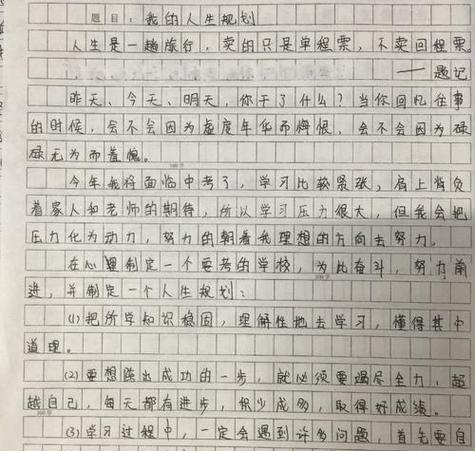 题目：我的人生规划
人生是一趟旅行，卖的只是单程票，不卖回程票。
——题记
昨天、今天、明天，你干了什么？当你回忆往事
的时候，会不会因为虚度年华而悔恨，会不会因为碌
碌无为而羞愧。
今年我将面临中考了，学习比较紧张，肩上背负
着家人和老师的期待，所以学习压力很大，但我会把
压力化为动力，努力的朝着我理想的方向去努力。
在心里制定一个要考的学校，为此奋斗，努力前
进，并制定一个人生规划：
(1)把所学知识稳固，理解性地去学习，懂得其中
道理。
(2)要想踏出成功的一步，就必须要竭尽全力，超
越自己，每天都有进步，积少成多，取得好成绩。
(3)学习过程中，一定会遇到许多问题，首先要自